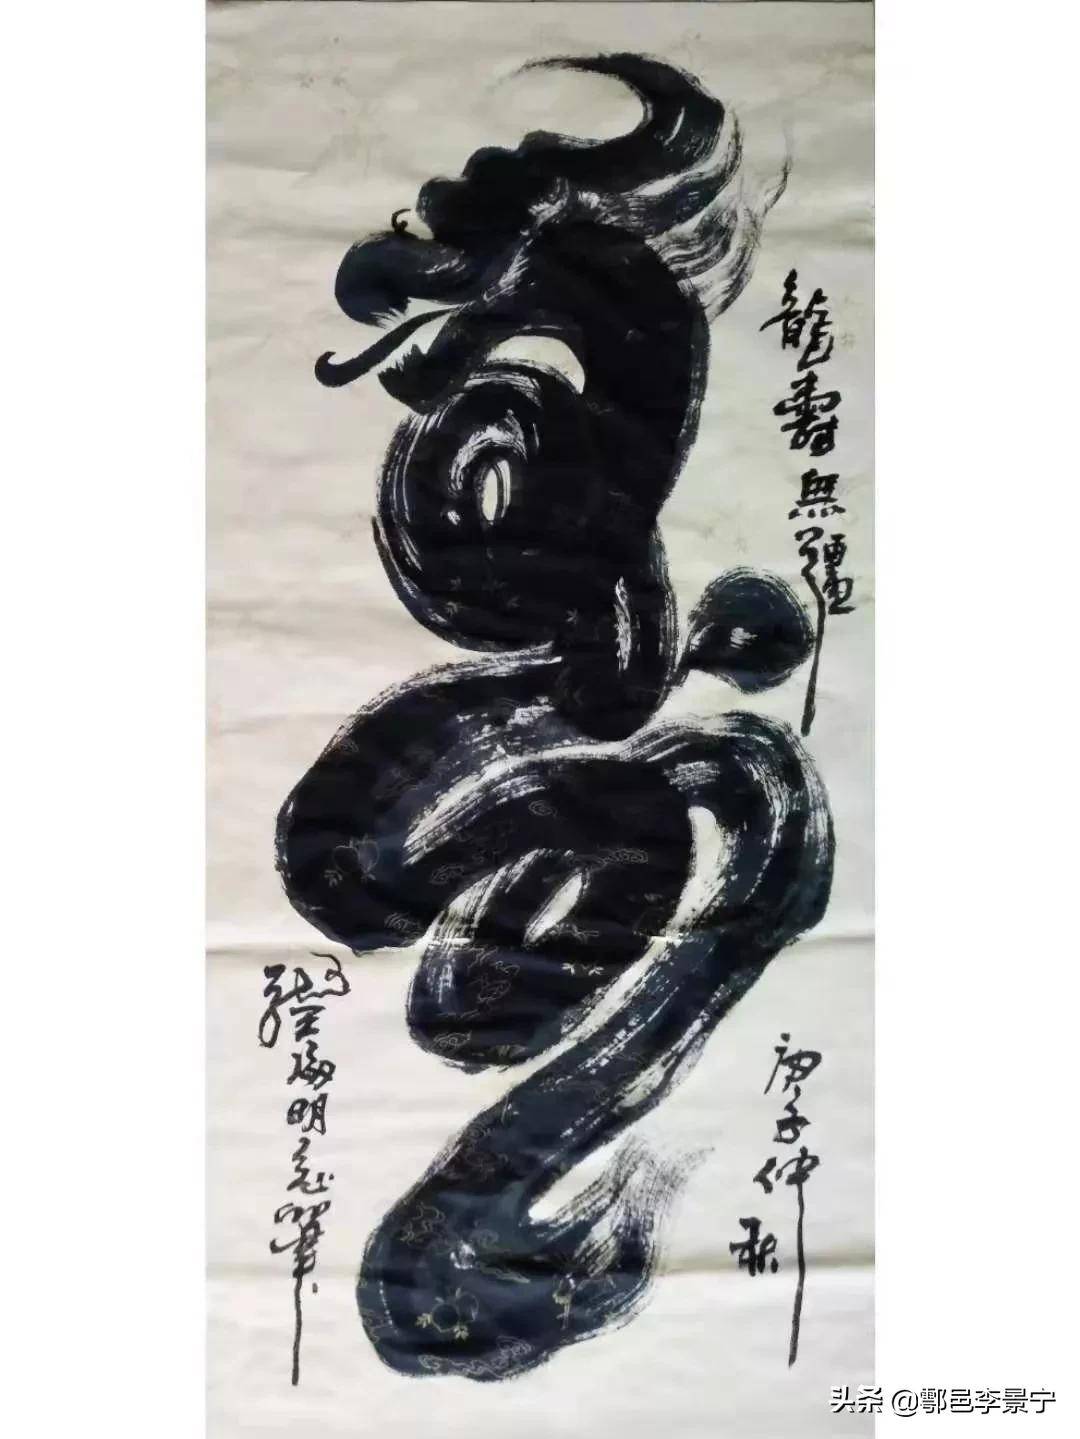 龍壽無疆
庚子仲秋
明
筆
头条 @鄠邑李景宁